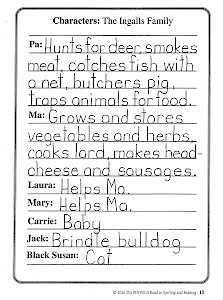 Characters: The Ingalls Family
Pa: Hunts for deer, smokes
meat, catches fish with
a net, butchers pig,
traps animals for food.
Ma: Grows and stores
vegetables and herbs,
cooks lard, makes head-
cheese and sausages.
Laura: Helps Ma.
Mary: Helps Ma.
Carrie: Baby
Jack: Brindle bulldog
Black Susan: Cat
The PHONICS Road to Spelling and Reading